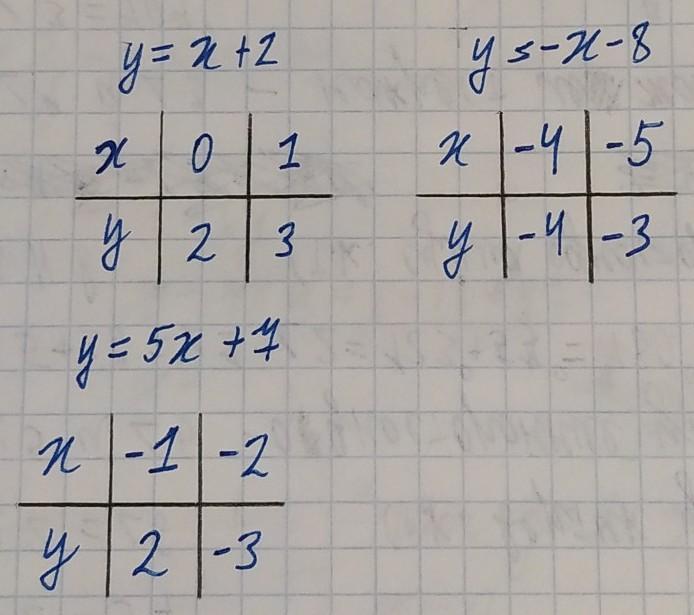 y = x + 2
y = -x - 8
x 0 1
x -4 -5
y 2 3
y -4 -3
y = 5x + 7
x -1 -2
y 2 -3